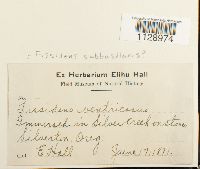 1128974
Ex Herbarium Elihu Hall
Field Museum of Natural History
Fissidens ventricosus
Immersed in Silver Creek on stone
Silverton, Oreg.
E. Hall June 17, 1871